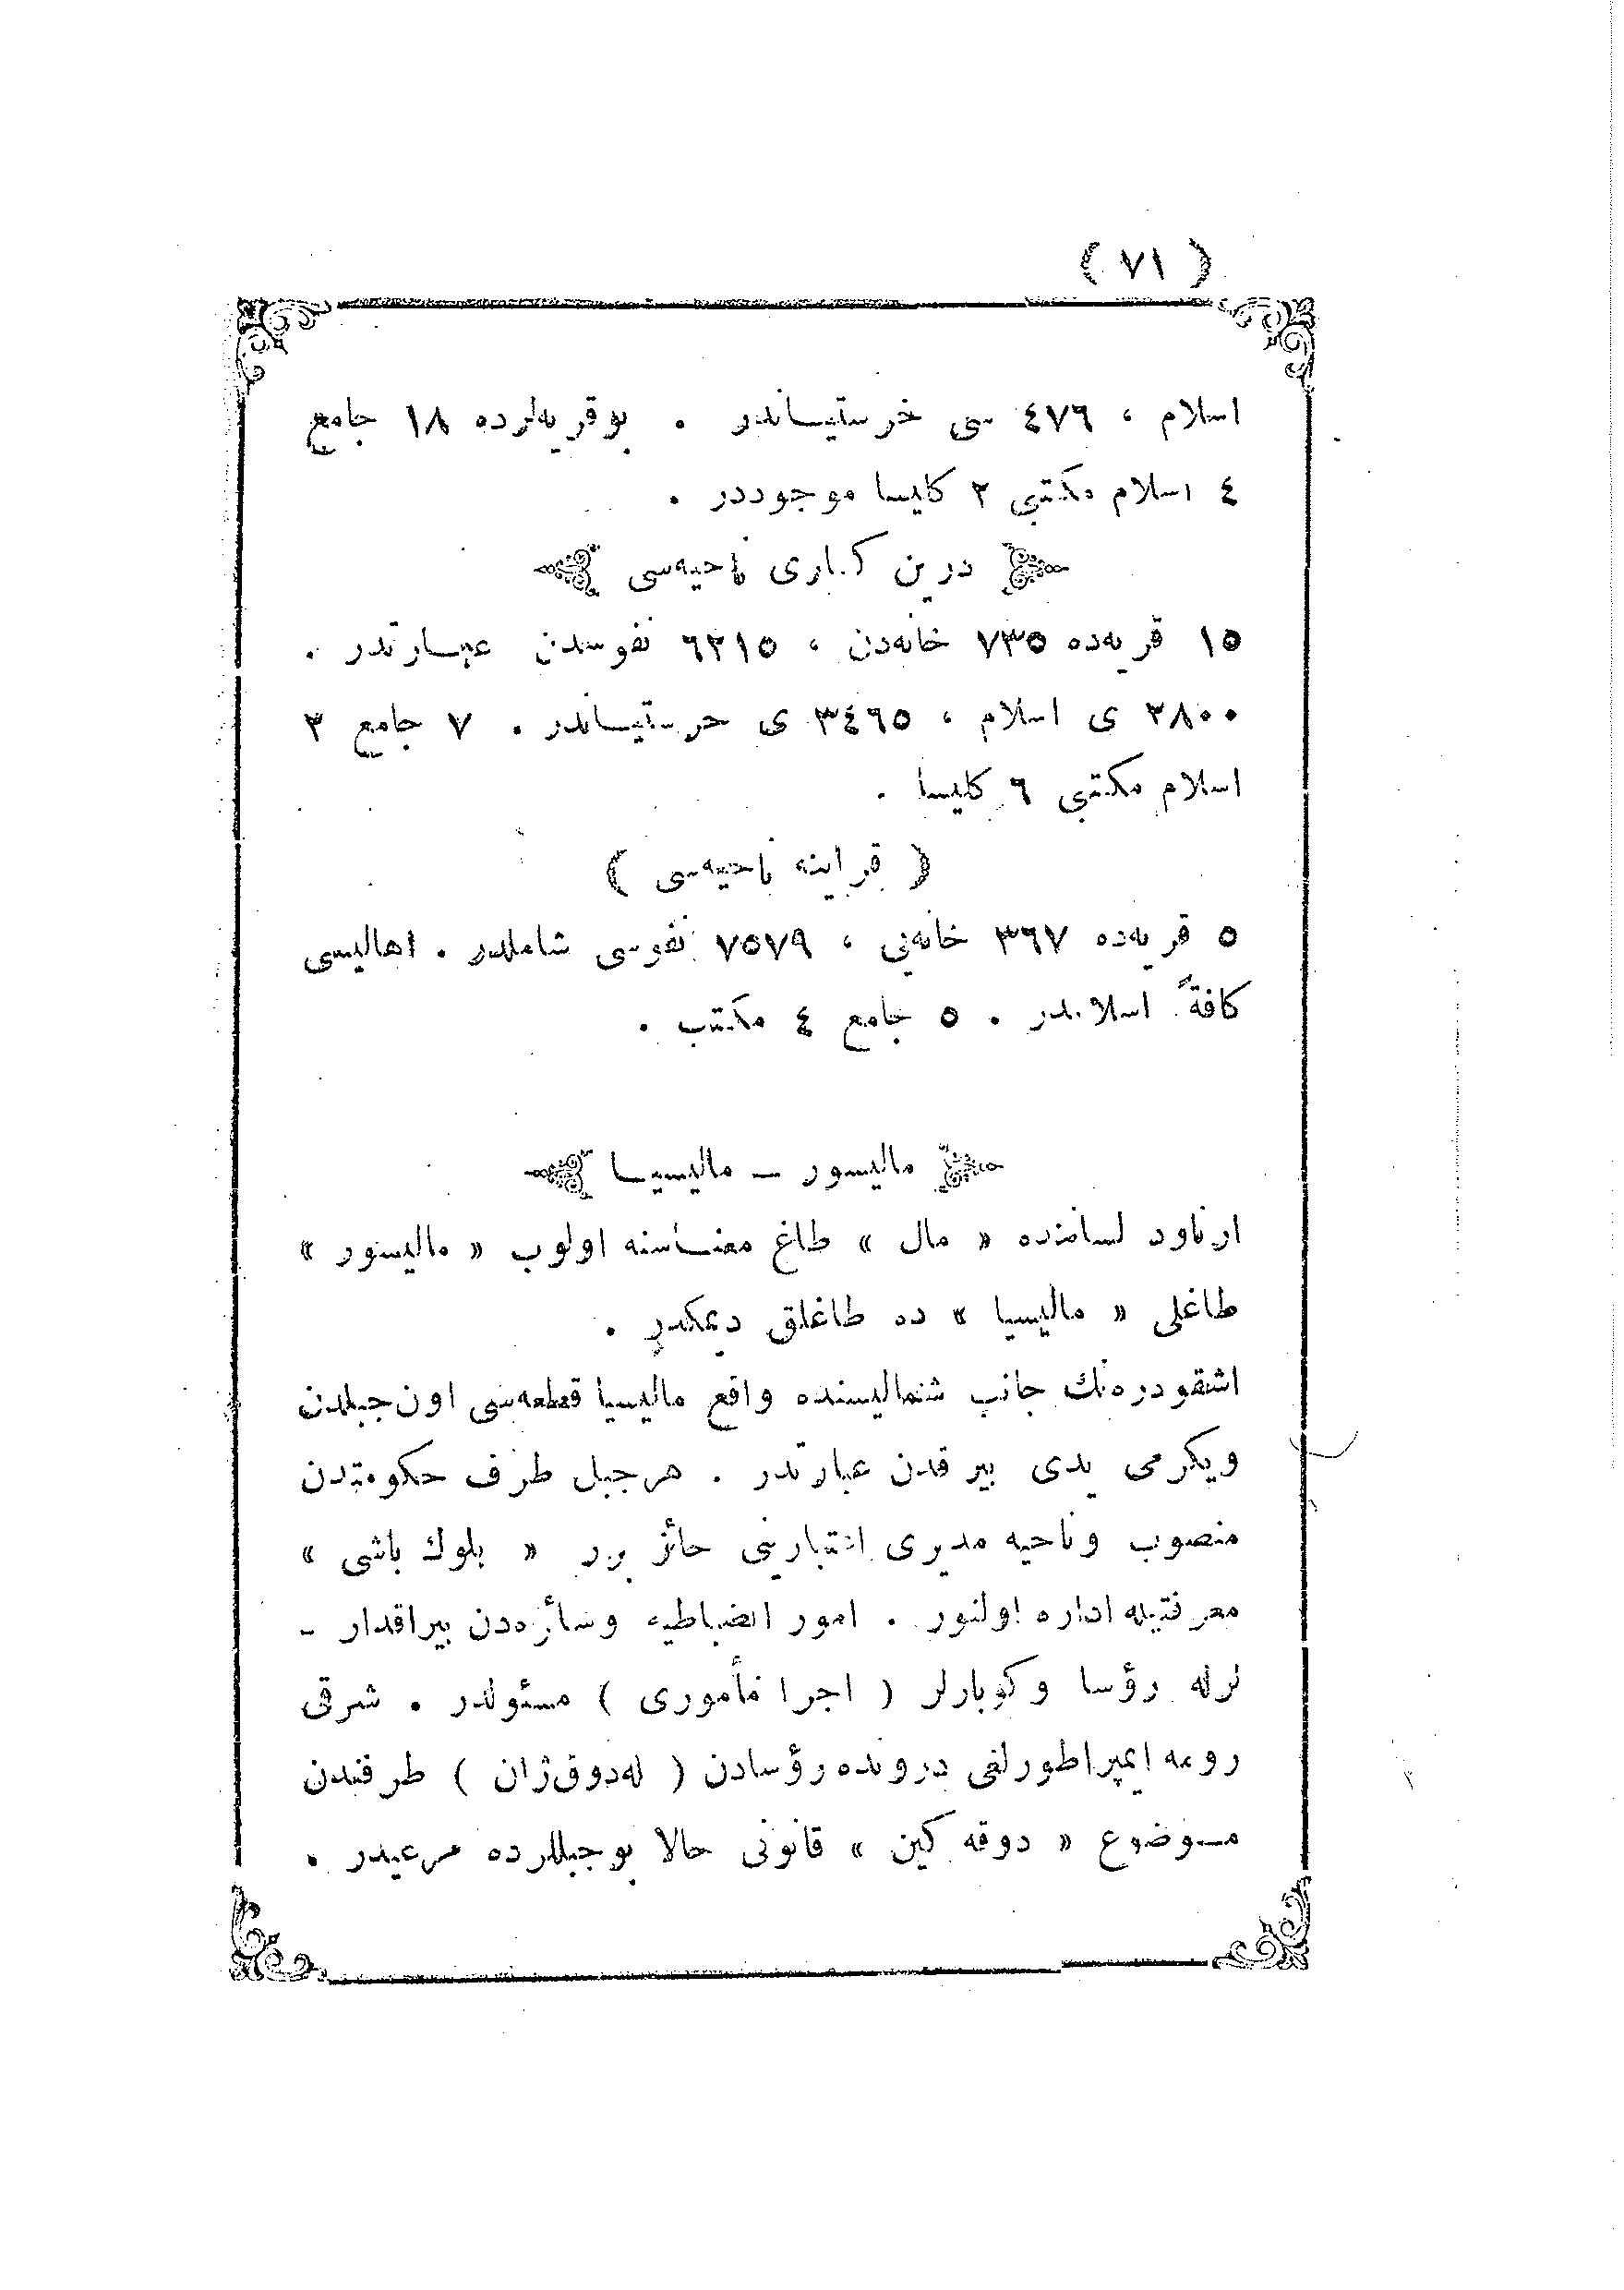 ( ٧١ )
اسلام ، ٤٧٦ سی خرستیاندر . بوقریه‌لرده ١٨ جامع
٤ اسلام مکتبی ٢ کلیسا موجوددر .
درین کناری ناحیه‌سی
١٥ قریه‌ده ٧٣٥ خانه‌دن ، ٦٢١٥ نفوسدن عبارتدر .
٢٨٠٠ ی اسلام ، ٣٤٦٥ ی خرستیاندر . ٧ جامع ٢
اسلام مکتبی ٦ کلیسا .
( قراینه ناحیه‌سی )
٥ قریه‌ده ٣٦٧ خانه‌یی ، ٧٥٧٩ نفوسی شاملدر . اهالیسی
کافةً اسلامدر . ٥ جامع ٤ مکتب .
مالیسور ــ مالیسیا
ارناود لسانمزده « مال » طاغ معناسنه اولوب « مالیسور »
طاغلی « مالیسیا » ده طاغلق دیمکدر .
اشقودره‌نك جانب شمالیسنده واقع مالیسیا قطعه‌سی اون جبلدن
ویکرمی یدی بیرقدن عبارتدر . هر جبل طرف حکومتدن
منصوب وناحیه مدیری اعتبارینی حائز برر « بلوك باشی »
معرفتیله اداره اولنور . امور انضباطیه وسائره‌دن بیراقدار -
لرله رؤسا وکوبارلر ( اجرا مأموری ) مسئولدر . شرقی
رومه ایمپراطورلغی درونده رؤسادن ( له‌دوق‌ژان ) طرفندن
موضوع « دوقه کین » قانونی حالا بوجبللرده مرعیدر .